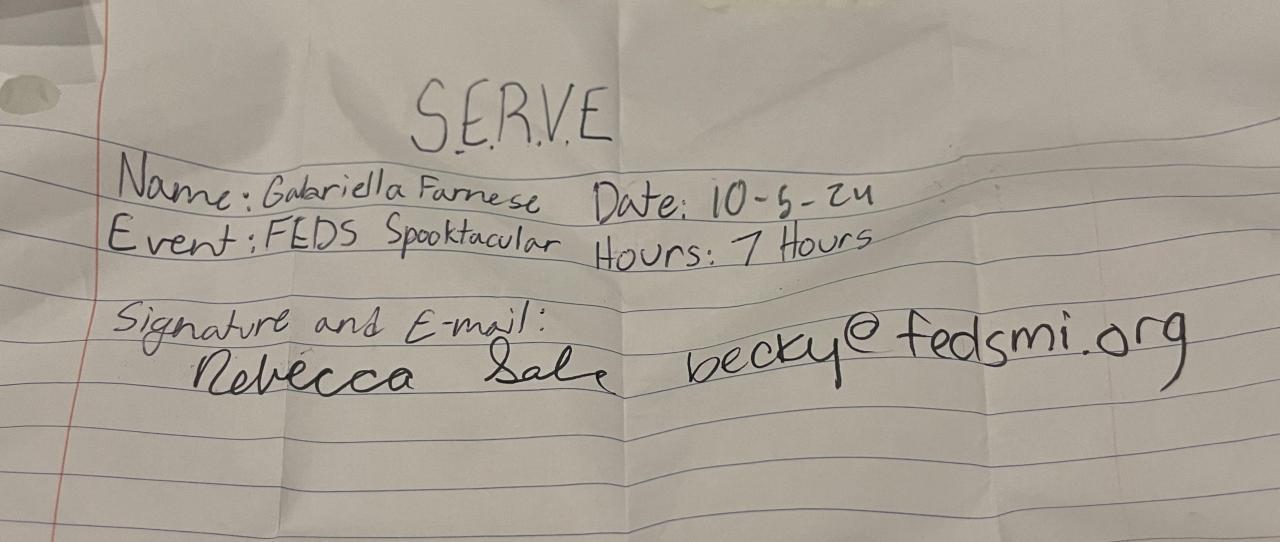 S.E.R.V.E
Name: Gabriella Farnese Date: 10-5-24
Event: FEDS Spooktacular Hours: 7 Hours
Signature and E-mail:
Rebecca Sale becky@fedsmi.org